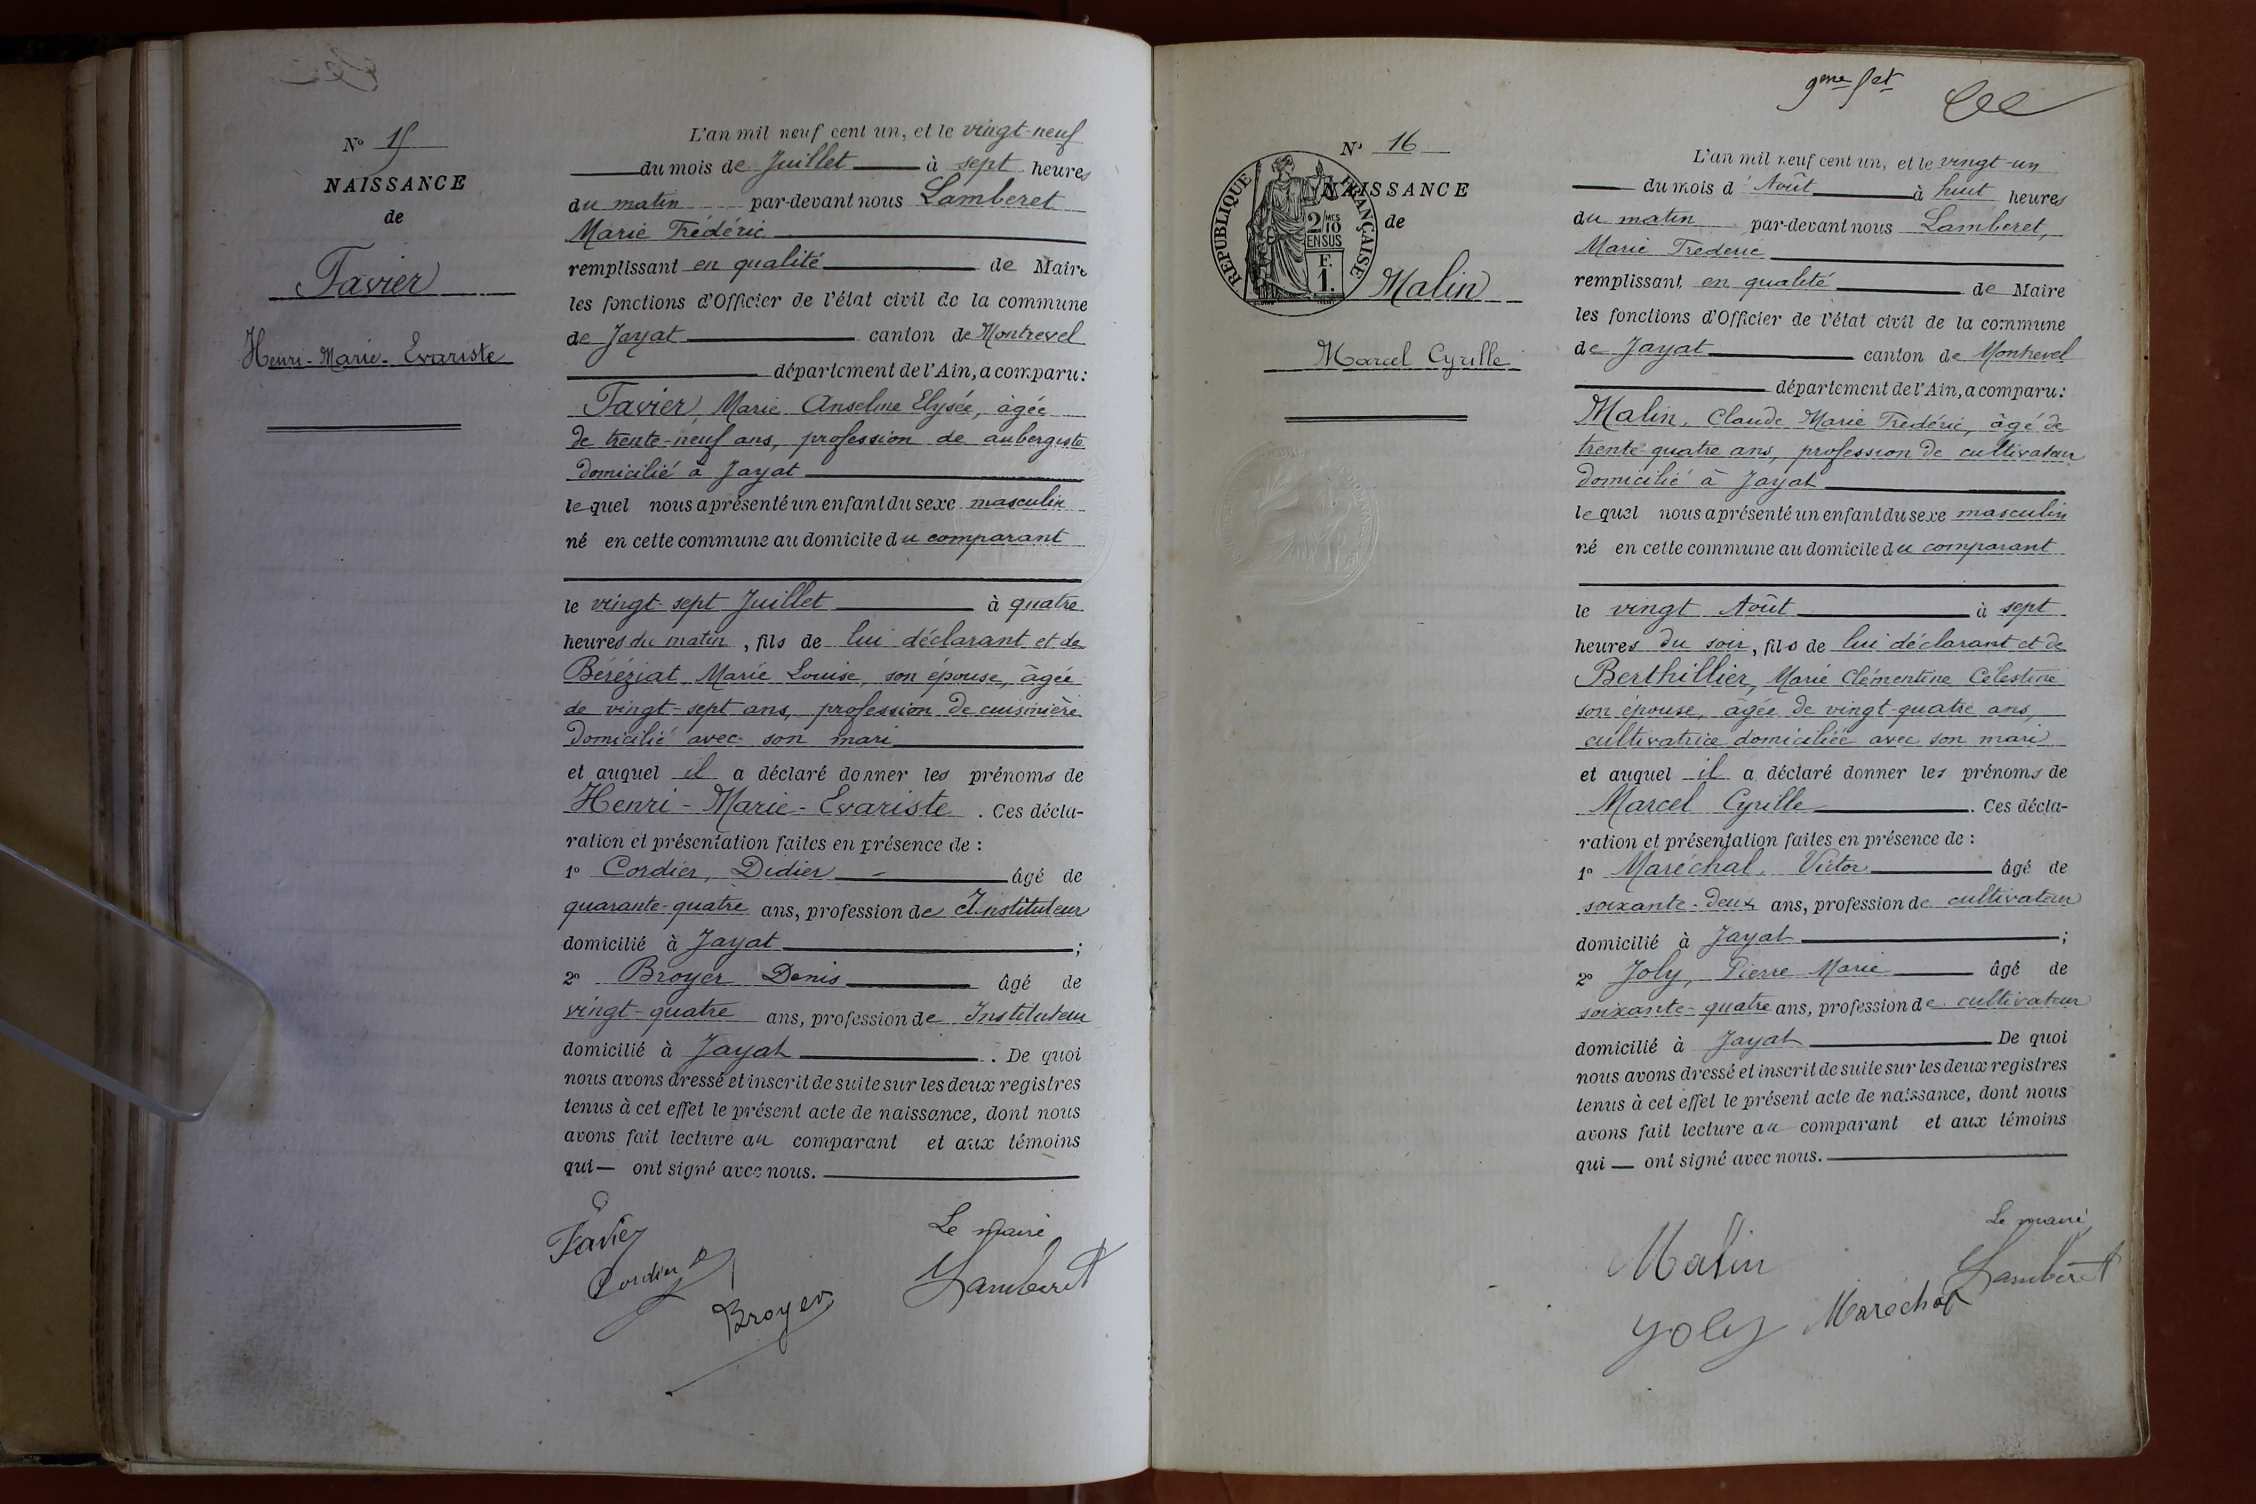 Nº 15
NAISSANCE
de
Favier
Henri-Marie-Evariste
L'an mil neuf cent un, et le vingt-neuf
du mois de Juillet à sept heures
du matin par-devant nous Lamberet
Marie Frédéric
remplissant en qualité de Maire
les fonctions d'Officier de l'état civil de la commune
de Jayat canton de Montrevel
département de l'Ain, a comparu :
Favier Marie Anselme Elysée, âgée
de trente-neuf ans, profession de aubergiste
domicilié à Jayat
lequel nous a présenté un enfant du sexe masculin
né en cette commune au domicile du comparant
le vingt-sept Juillet à quatre
heures du matin, fils de lui déclarant et de
Béréziat Marie Louise, son épouse, âgée
de vingt-sept ans, profession de cuisinière
domicilié avec son mari
et auquel il a déclaré donner les prénoms de
Henri-Marie-Evariste. Ces décla-
ration et présentation faites en présence de :
1º Cordier, Didier âgé de
quarante-quatre ans, profession de Instituteur
domicilié à Jayat ;
2º Broyer Denis âgé de
vingt-quatre ans, profession de Instituteur
domicilié à Jayat . De quoi
nous avons dressé et inscrit de suite sur les deux registres
tenus à cet effet le présent acte de naissance, dont nous
avons fait lecture au comparant et aux témoins
qui — ont signé avec nous.
Favier
Le maire
Cordier D
Lamberet
Broyer
9eme
Nº 16
RÉPUBLIQUE FRANÇAISE
2/10 MES
EN SUS
F.
1.
NAISSANCE
de
Malin
Marcel Cyrille
L'an mil neuf cent un, et le vingt-un
du mois d'Août à huit heures
du matin par-devant nous Lamberet,
Marie Frederic
remplissant en qualité de Maire
les fonctions d'Officier de l'état civil de la commune
de Jayat canton de Montrevel
département de l'Ain, a comparu :
Malin, Claude Marie Frédéric, âgé de
trente-quatre ans, profession de cultivateur
domicilié à Jayat
lequel nous a présenté un enfant du sexe masculin
né en cette commune au domicile du comparant
le vingt Août à sept
heures du soir, fils de lui déclarant et de
Berthillier, Marie Clémentine Célestine
son épouse, âgée de vingt-quatre ans,
cultivatrice domiciliée avec son mari
et auquel il a déclaré donner les prénoms de
Marcel Cyrille . Ces décla-
ration et présentation faites en présence de :
1º Maréchal, Victor âgé de
soixante-deux ans, profession de cultivateur
domicilié à Jayat ;
2º Joly, Pierre Marie âgé de
soixante-quatre ans, profession de cultivateur
domicilié à Jayat De quoi
nous avons dressé et inscrit de suite sur les deux registres
tenus à cet effet le présent acte de naissance, dont nous
avons fait lecture au comparant et aux témoins
qui — ont signé avec nous.
Malin
Le maire,
Lamberet
Joly
Maréchal